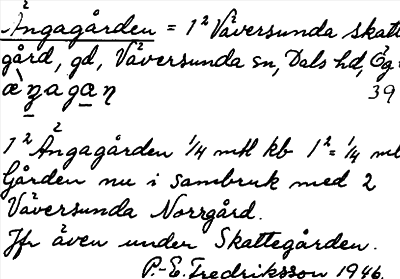 Ängagården = 1² Väversunda skatte
gård, gd, Väversunda sn, Dals hd, Ög
39
1² Ängagården 1/4 mtl kb 1² = 1/4 m
Gården nu i sambruk med 2
Väversunda Norrgård.
Jfr även under Skattegården.
P.-E. Fredriksson 1946.